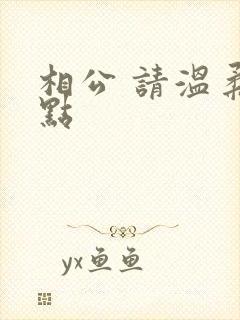 相公 請溫柔
點
yx鱼鱼